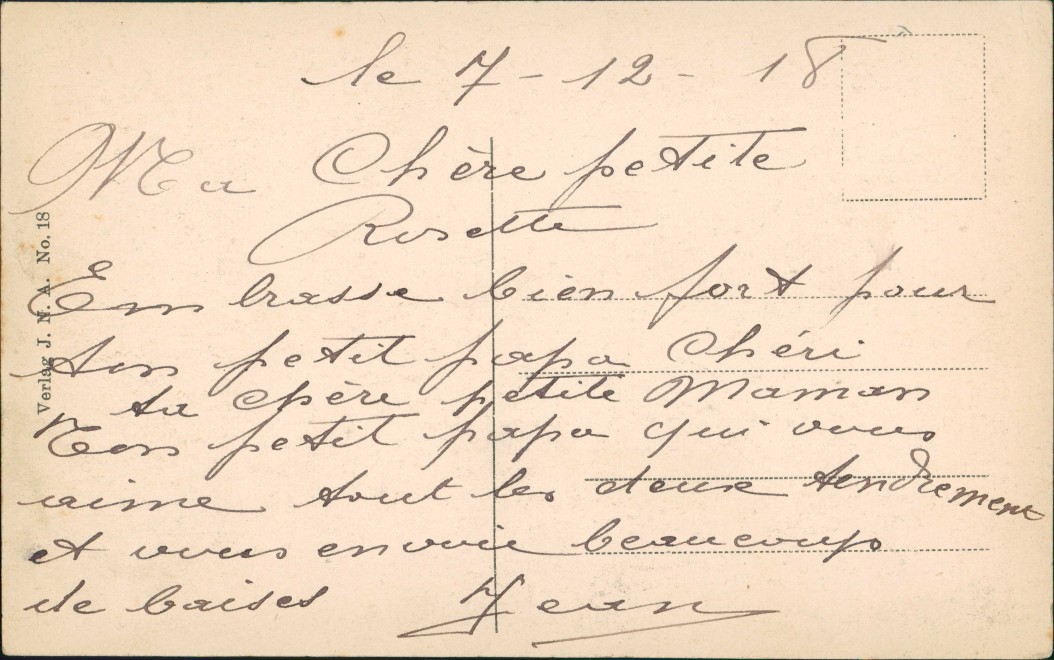 le 7 - 12 - 18
Ma Chère petite
Rosette
Embrasse bien fort pour
ton petit papa Chéri
ta chère petite Maman
Ton petit papa qui vous
aime tout les deux tendrement
et vous envoie beaucoup
de baises Jean
Verlag J. N. A. No. 18